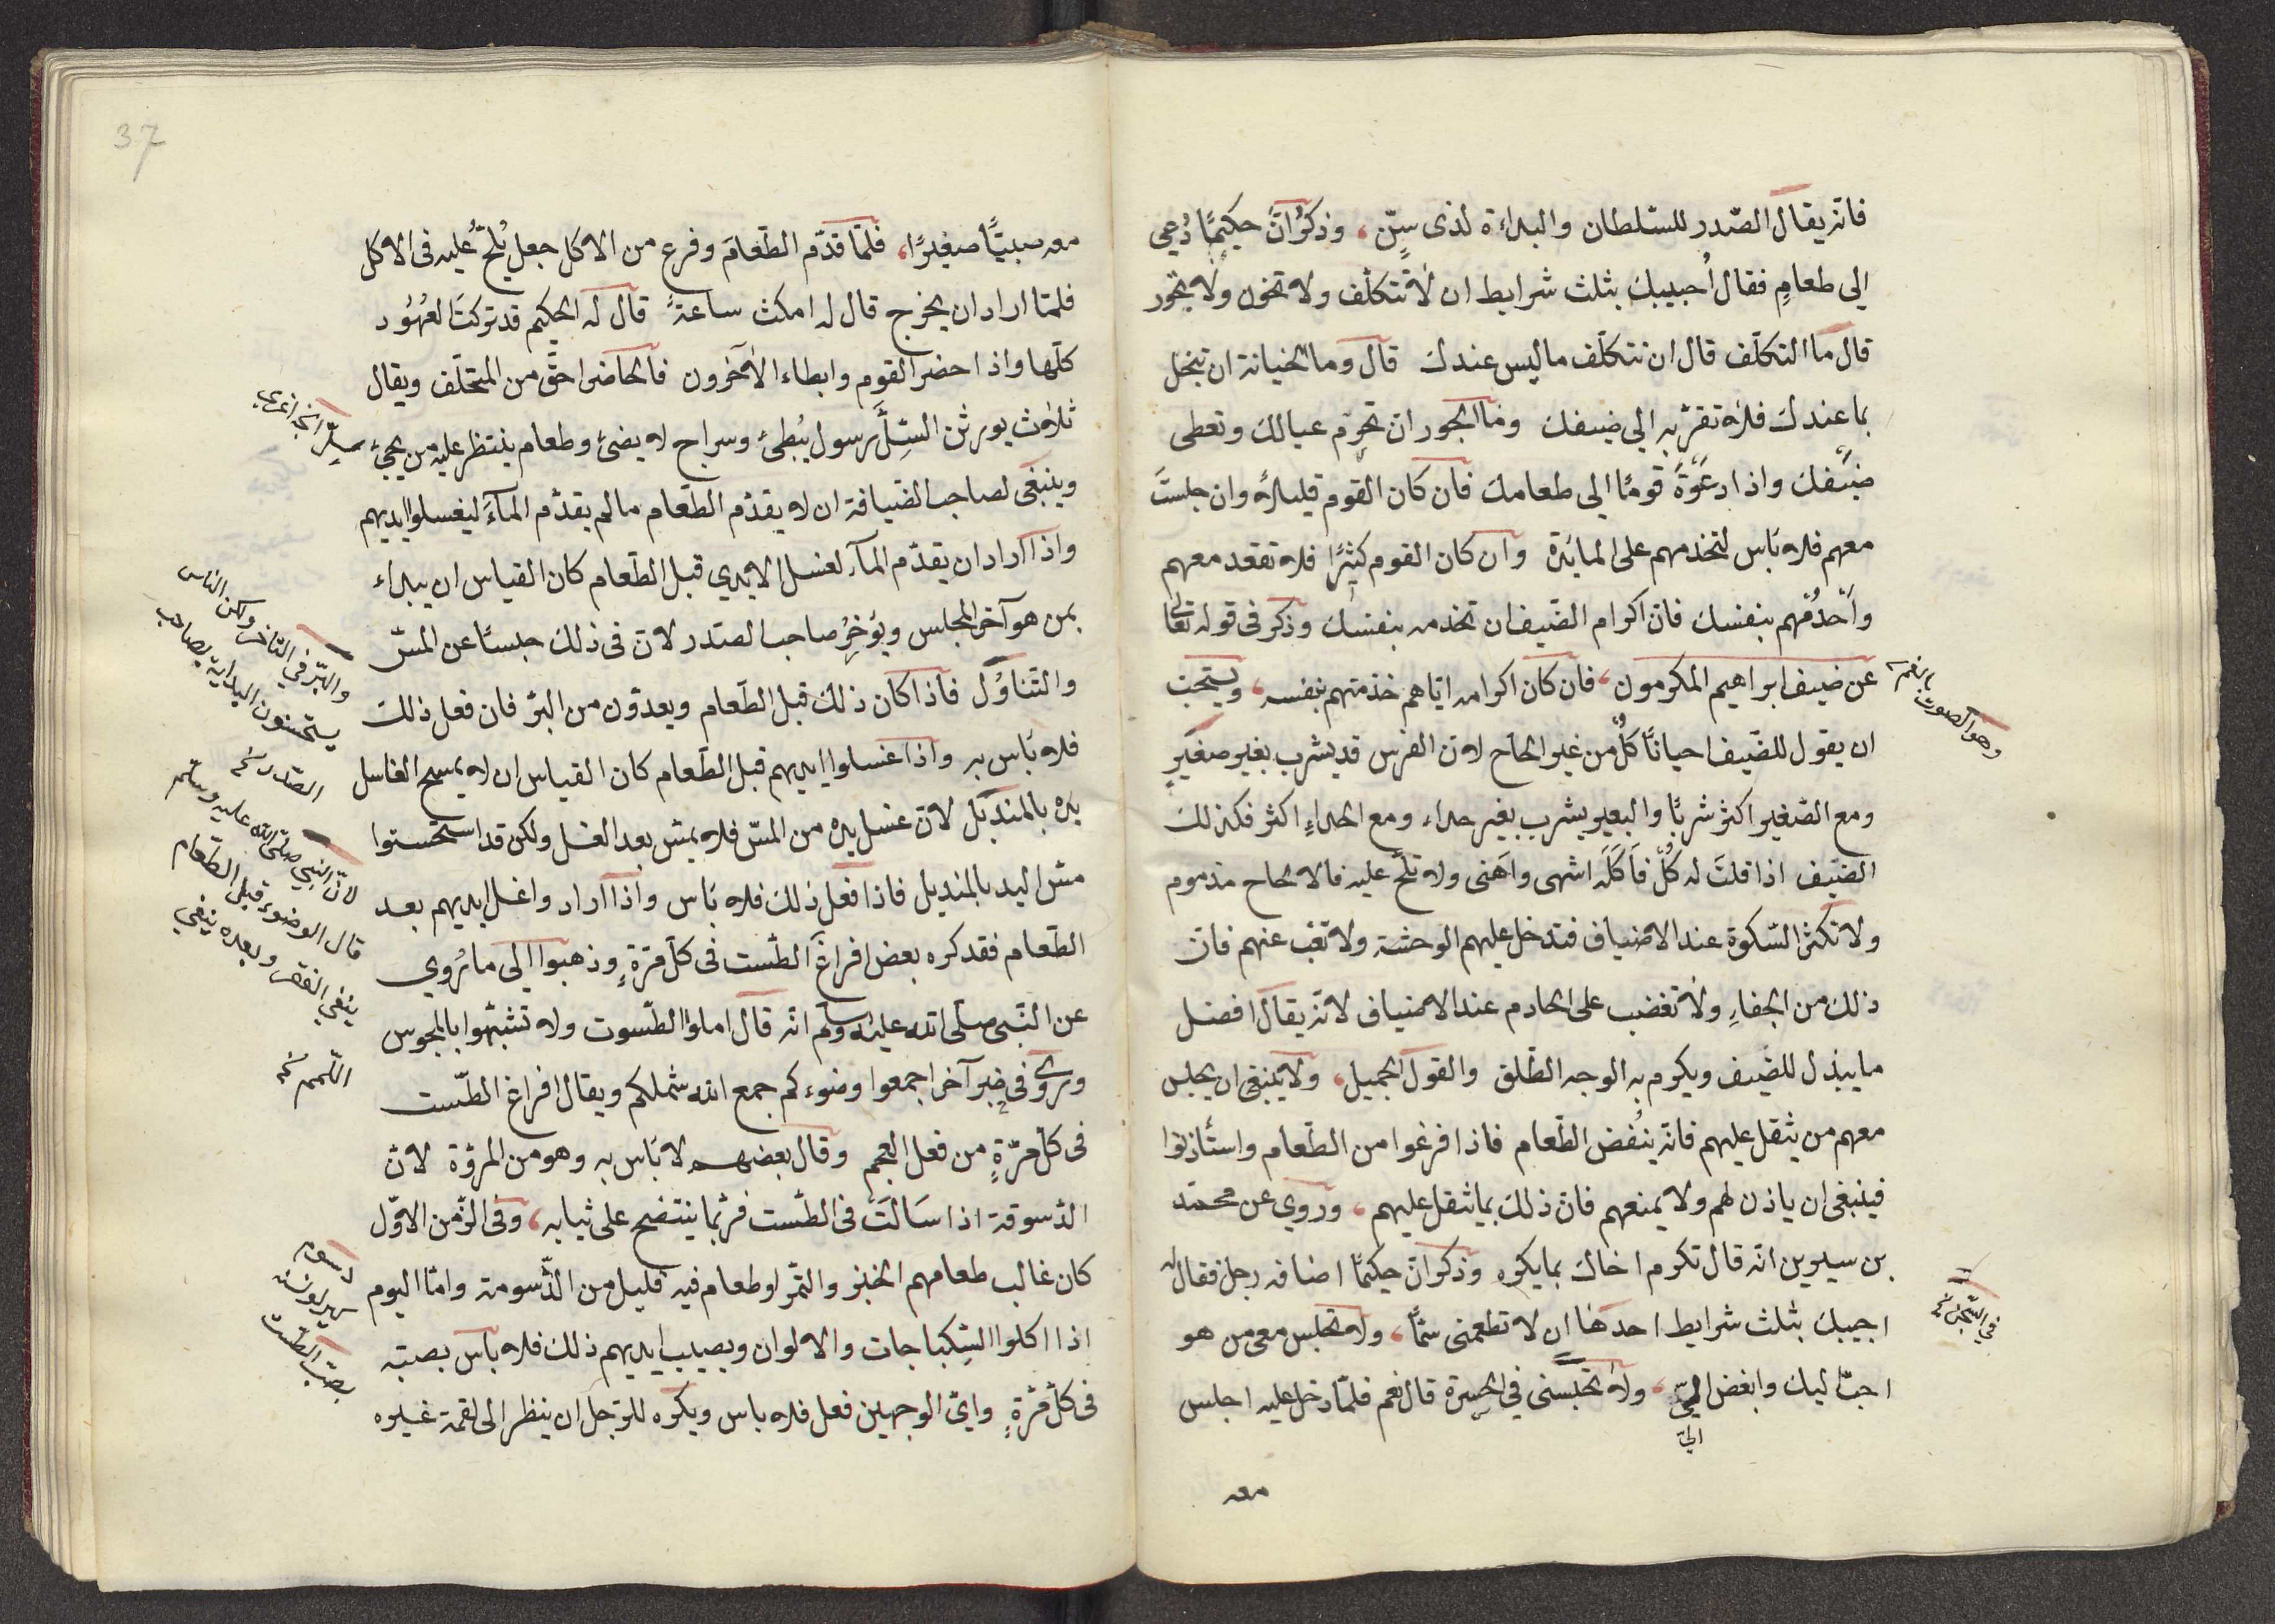 فانّه يقال الصّدر للسّلطان والبداءة لذى سِنٍّ، وذكر انّ حكيمًا دُعِي
الى طعامٍ فقال اُجيبك بثلث شرايط ان لا تتكلّف ولا تخون ولا تجور
قال ما التكلّف قال ان تتكلّف ما ليس عندك قال وما الخيانة ان تبخل
بما عندك فلا تقرّبه الي ضيفك وما الجور ان تحرم عيالك وتعطى
ضيفك واذا دعوة قومًا الى طعامك فان كان القوم قليلاً وان جلست
معهم فلا بَأس لتخدمهم على المائدة وان كان القوم كثيرًا فلا تقعد معهم
وأخدُمْهم بنفسك فانّ اكرام الضّيف ان تخدمه بنفسك وذكر فى قوله تعالى
عن ضيف ابراهيم المكرمون، فان كان اكرامه ايّاهم خدمتهم بنفسه، ويستحبّ
ان يقول للضّيف احيانًا كُلْ من غير الحاح لانّ الفرس قد يشرب بغير صفير
ومع الصّفير اكثر شربًا والبعير يشرب بغير حداء ومع الحداءِ اكثر فكذلك
الضّيف اذا قلتَ له كُلْ فاَكَلَه اشهى واَهنى ولا تلحّ عليه فالالحاح مذموم
ولا تكثر السّكوة عند الاضياف فتدخل عليهم الوحشة ولا تغب عنهم فانّ
ذلك من الجفاءِ ولا تغضب على الخادم عند الاضياف لانّه يقال افضل
ما يبذل للضّيف ويكرم به الوجه الطّلق والقول الجميل، ولا ينبغى ان يجلس
معهم من يثقل عليهم فانّه ينُغض الطّعام فاذا فرغوا من الطّعام واستأذنوا
فينبغى ان ياذن لهم ولا يمنعهم فانّ ذلك بما يثقل عليهم، وروي عن محمّد
بن سيرين انّه قال تكرم اخاك بما يكره وذكر انّ حكيمًا اضافه رجل فقال له
اجيبك بثلث شرايط احدها ان لا تطعمنى سمًّا، ولا تجلس معى من هو
احبّ ليك وابغض اليّ، ولا تحبّسنى في الحسرة قال نعم فلمّا دخل عليه اجلس
اليّ
معه
وهو الصوت بالفم
في السّجن نخ
37
معه صبيًّا صغيرًا، فلمّا قدّم الطّعامَ وفرغ من الاكل جعل يُلحُّ عليه فى الاكل
فلمّا اراد ان يخرج قال له امكث ساعةً قال له الحكيم قد تركتَ العُهُود
كلّها واذا حضر القوم وابطاء الآخرون فالحاضر احقّ من المتخلّف ويقال
ثلاث يورثن السِّلَّ رسول يُبْطئ وسراج لا يضئ وطعام ينتظر عليه من يجئ
وينبغى لصاحب الضّيافة ان لا يقدّم الطّعام ما لم يقدّم المآءَ ليغسلوا ايديهم
واذا اراد ان يقدّم المآء لغسل الايدي قبل الطّعام كان القياس ان يبداء
بمن هو آخر المجلس ويؤخِّرُ صاحب الصّدر لانّ فى ذلك حبسًا عن المسّ
والتّناوُل فاذا كان ذلك قبل الطّعام ويعدّون من البرّ فان فعل ذلك
فلا بَاس به واذا غسلوا ايديهم قبل الطّعام كان القياس ان لا يمسح الغاسل
يده بالمنديل لانّ غسل يده من المسّ فلا يمسّ بعد الغسل ولكن قد استحسنوا
مسّ اليد بالمنديل فاذا فعل ذلك فلا بَاس واذا اراد واغسل ايديهم بعد
الطّعام فقد كره بعض افراغ الطّست فى كلّ مرّةٍ وذهبوا الى ما رُوي
عن النّبى صلّى الله عليه وسلم انّه قال املوا الطّسوت ولا تشبّهوا بالمجوس
وروى فى خبر آخر اجمعوا وضوءكم جمع الله شملكم ويقال افراغ الطّست
فى كلّ مرّةٍ من فعل العجم وقال بعضهم لا بَاس به وهو من المروّة لانّ
الدّسوقة اذا سَالَتْ فى الطّست فربّما ينتضح على ثيابه، وفى الزّمن الاوّل
كان غالب طعامهم الخبز والتّمر او طعام فيه قليل من الدّسومة وامّا اليوم
اذا اكلوا السِّكباجات والالوان ويصيب ايديهم ذلك فلا باس بصبّه
فى كلّ مرّةٍ وايّ الوجهين فعل فلا باس ويكره للرّجل ان ينظر الى لقمة غيره
والبرّ في التاخر ولكن الناس
يستحسنون البداية بصاحب
الصّدر نخ
لانّ النبي صلّى الله عليه وسلّم
قال الوضوء قبل الطّعام
ينفي الفقر وبعده ينفي
اللّمم نخ
بصبّ الطّست